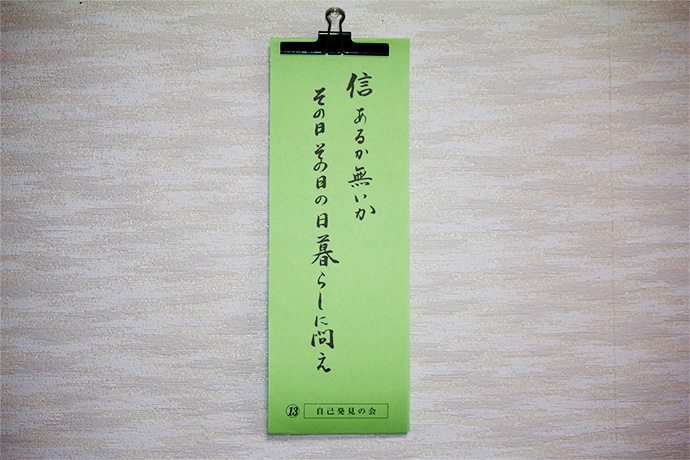 信あるか無いか
その日その日の日暮らしに問え
13 自己発見の会